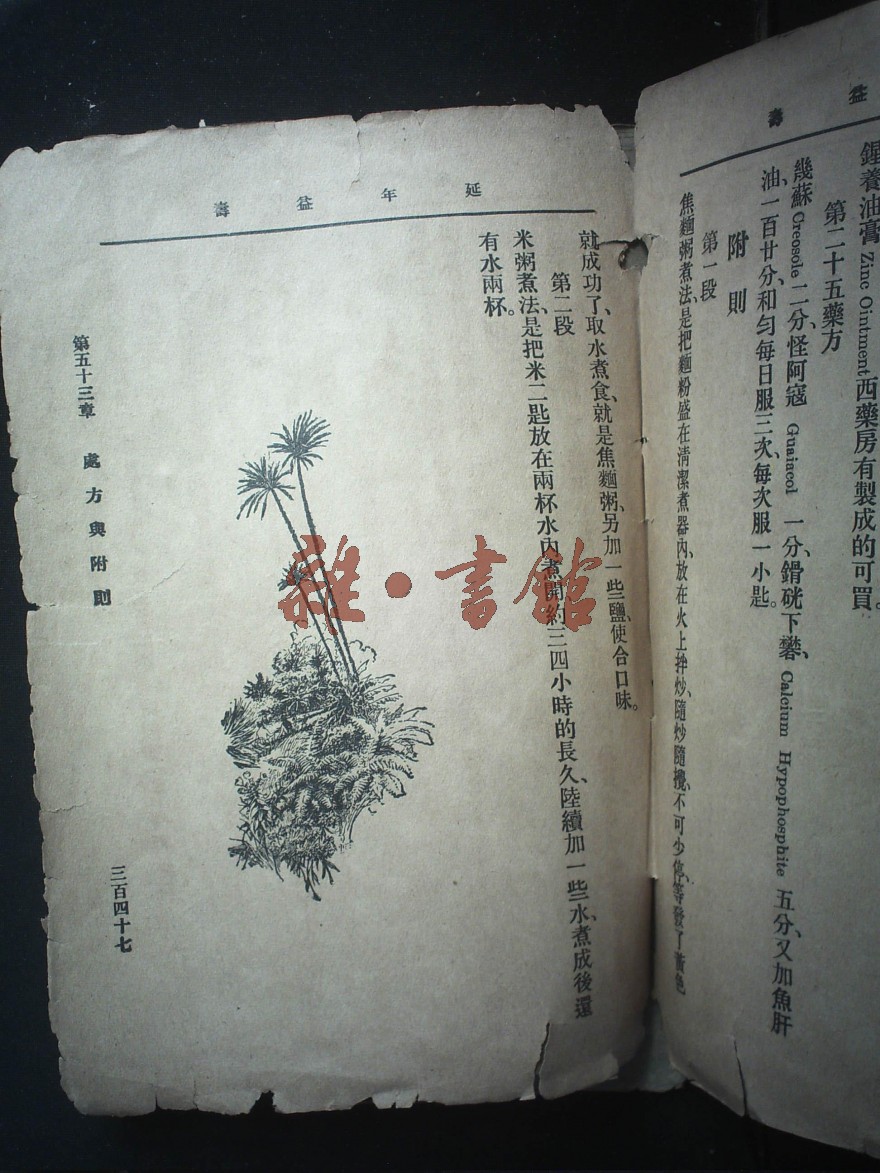 益壽
鋅養油膏 Zinc Ointment 西藥房有製成的可買。
第二十五藥方
幾蘇 Creosole 二分、怪阿寇 Guaiacol 一分、鎉硄下礬、Calcium Hypophosphite 五分、又加魚肝
油、一百廿分、和勻每日服三次、每次服一小匙。
附則
第一段
焦麵粥煮法、是把麵粉盛在清潔煮器內、放在火上拌炒、隨炒隨攪、不可少停、等發了黃色
延年益壽
就成功了、取水煮食、就是焦麵粥、另加一些鹽、使合口味。
第二段
米粥煮法、是把米二匙放在兩杯水內煮開約三四小時的長久、陸續加一些水、煮成後還
有水兩杯。
第五十三章 處方與附則
三百四十七
雜·書館